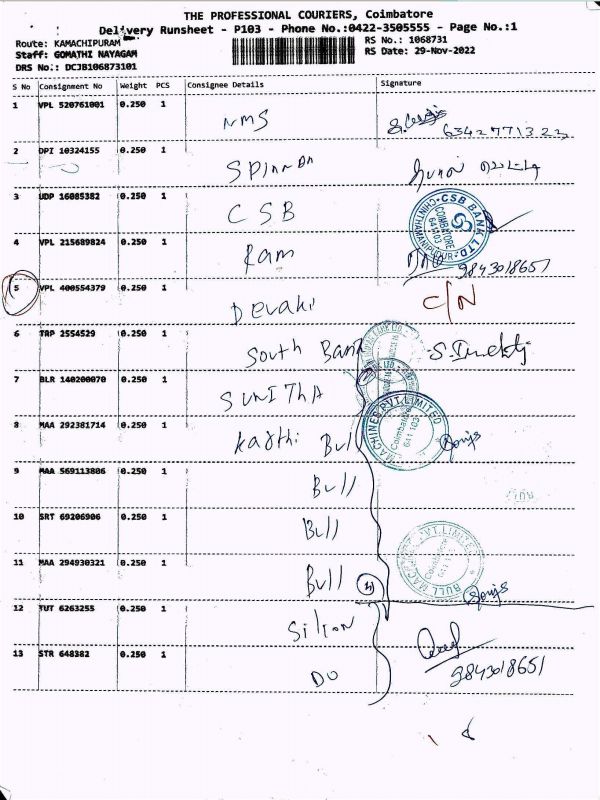 THE PROFESSIONAL COURIERS, Coimbatore
Delivery Runsheet - P103 - Phone No.:0422-3505555 - Page No.:1
Route: KAMACHIPURAM
Staff: GOMATHI NAYAGAM
DRS No.: DCJB106873101
RS No.: 1068731
RS Date: 29-Nov-2022
S No Consignment No Weight PCS Consignee Details Signature
1 VPL 520761001 0.250 1 NMS
2 DPI 10324155 0.250 1
3 UDP 16085382 0.250 1 CSB
CSB BANK LTD.
CHINTHAMANIPUDUR
COIMBATORE
641 103
4 VPL 215689824 0.250 1 Ram 9843018651
5 VPL 400554379 0.250 1 Devaki C/N
6 TRP 2554529 0.250 1 South Bank
7 BLR 140200070 0.250 1 SUNITHA
8 MAA 292381714 0.250 1 Karthi Bull
MACHINES PVT. LIMITED
Coimbatore
641 103
9 MAA 569113806 0.250 1 Bull
10 SRT 69206906 0.250 1 Bull
11 MAA 294930321 0.250 1 Bull 4
BULL MACHINES PVT. LIMITED
Coimbatore
641 103
12 TUT 6263255 0.250 1
13 STR 648382 0.250 1 DO 9843018651